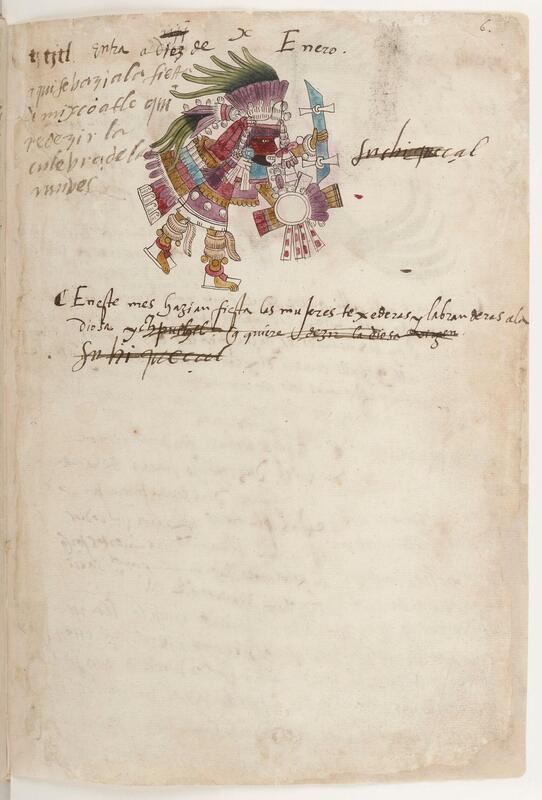 6.
tititl entra a diez de x Enero.
aqui se hazia la fiesta
de mixcoatle que
re dezir la
culebra de la
nunves
Suchiqueçal
En este mes hazian fiesta las mujeres texederas y labranderas a la
diosa y q quiere dezir la diosa
Suchiqueçal